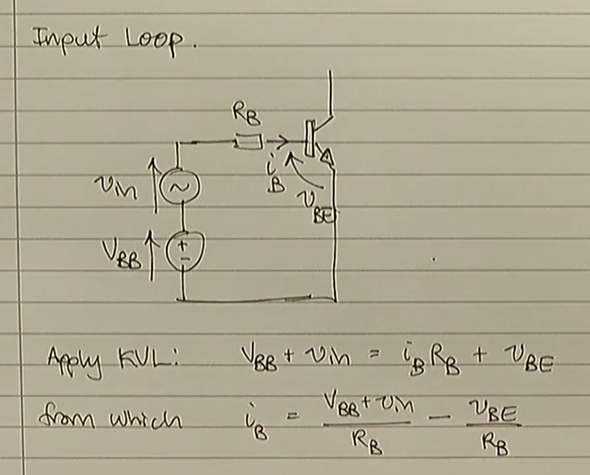 Input Loop.
R_B
v_in
i_B
v_BE
V_BB
+
-
Apply KVL: V_BB + v_in = i_B R_B + v_BE
from which i_B = (V_BB + v_in)/R_B - v_BE/R_B